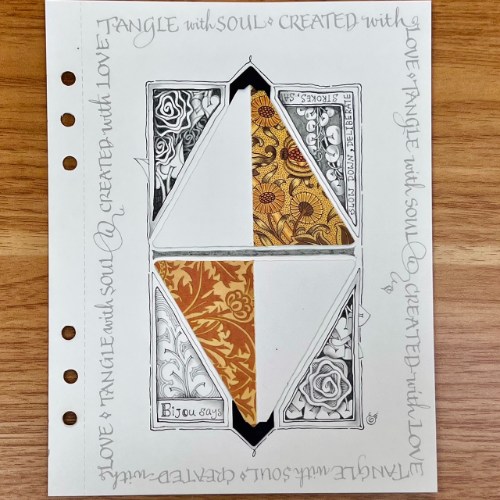 TANGLE with SOUL ⋄ CREATED with
LOVE ⋄ TANGLE with SOUL CREATED with LOVE
TANGLE with SOUL ⋄ CREATED with
LOVE ⋄ TANGLE with SOUL CREATED with LOVE
SLOW DOWN • DELIBERATE
STROKES,
Bijou says